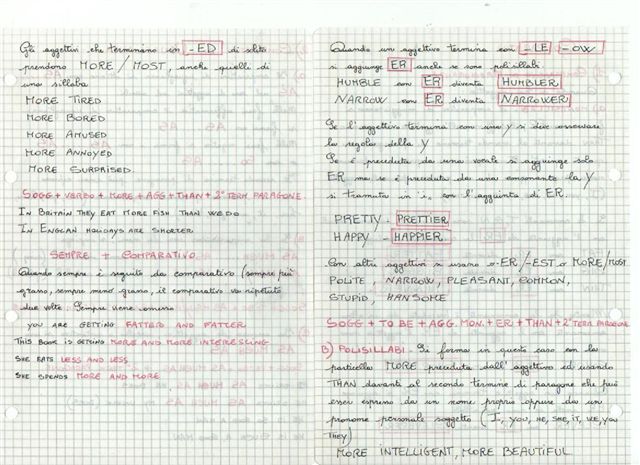 Gli aggettivi che terminano in -ED di solito
prendono MORE/MOST, anche quelli di
una sillaba
MORE TIRED
MORE BORED
MORE AMUSED
MORE ANNOYED
MORE SURPRISED.
SOGG + VERBO + MORE + AGG + THAN + 2° TERM. PARAGONE.
IN BRITAIN THEY EAT MORE FISH THAN WE DO
IN ENGLAN HOLIDAYS ARE SHORTER
SEMPRE + COMPARATIVO
Quando sempre è seguito da comparativo (sempre più
grasso, sempre meno grasso, il comparativo va ripetuto
due volte. Sempre viene omesso
YOU ARE GETTING FATTER AND FATTER
THIS BOOK IS GETTING MORE AND MORE INTERESTING
SHE EATS LESS AND LESS
SHE SPENDS MORE AND MORE
Quando un aggettivo termina con -LE -OW
si aggiunge ER anche se sono polisillabi
HUMBLE con ER diventa HUMBLER
NARROW con ER diventa NARROWER
Se l'aggettivo termina con una Y si deve osservare
la regola della Y
Se è preceduta da una vocale si aggiunge solo
ER ma se è preceduta da una consonante la Y
si tramuta in i, con l'aggiunta di ER.
PRETTY - PRETTIER
HAPPY - HAPPIER
Con altri aggettivi si usano o -ER/-EST o MORE/MOST
POLITE, NARROW, PLEASANT, COMMON,
STUPID, HANSOME
SOGG + TO BE + AGG. MON. + ER + THAN + 2° TERM PARAGONE
B) POLISILLABI. Si forma in questo caso con la
particella MORE preceduta dall'aggettivo ed usando
THAN davanti al secondo termine di paragone che può
essere espresso da un nome proprio oppure da un
pronome personale soggetto (I, YOU, HE, SHE, IT, WE, YOU
THEY)
MORE INTELLIGENT, MORE BEAUTIFUL